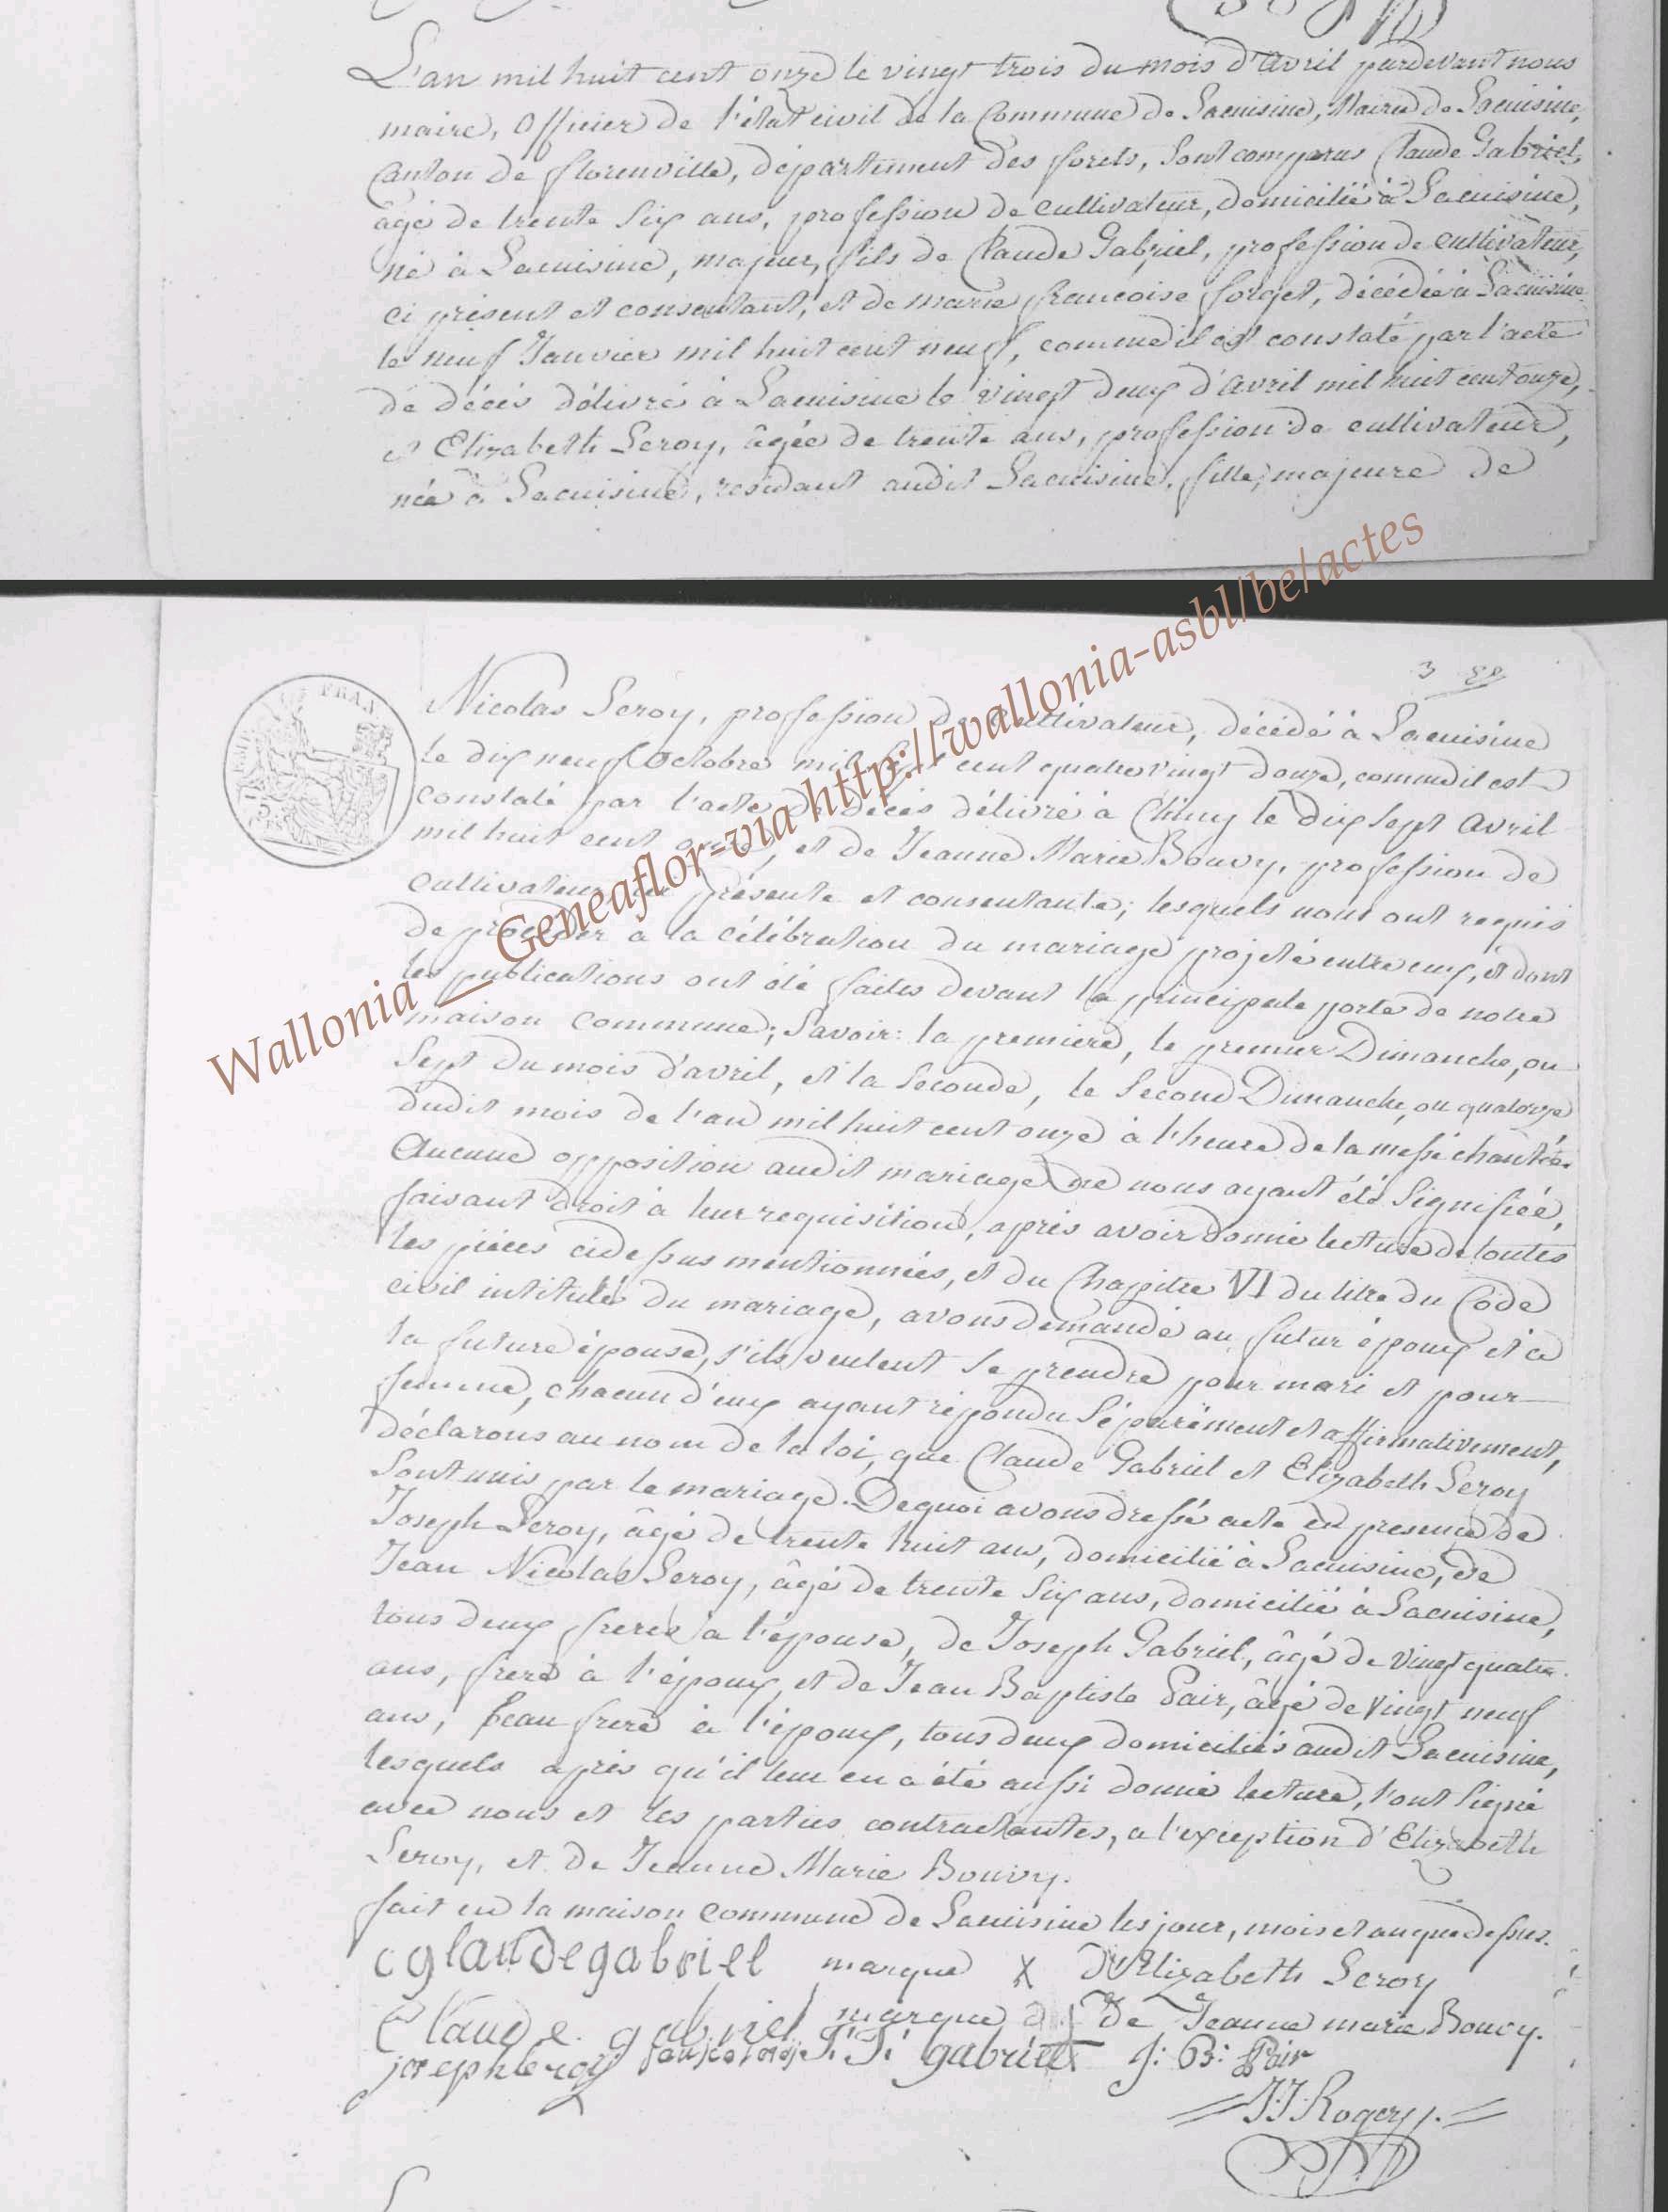 L'an mil huit cent onze le vingt trois du mois d'avril pardevant nous
maire, Officier de l'état civil de la Commune de Lacuisine, Mairie de Lacuisine,
Canton de florenville, département des forets, sont comparus Claude Gabriel,
âgé de trente six ans, profession de cultivateur, domicilié à Lacuisine,
né à Lacuisine, majeur, fils de Claude Gabriel, profession de cultivateur,
ci présent et consentant, et de marie françoise forget, décédée à Lacuisine
le neuf Janvier mil huit cent neuf, comme il est constaté par l'acte
de décès délivré à Lacuisine le vingt deux d'avril mil huit cent onze,
et Elizabeth Leroy, âgée de trente ans, profession de cultivateur,
née à Lacuisine, residant audit Lacuisine, fille majeure de
3
Nicolas Leroy, profession de cultivateur, décédé à Lacuisine
le dix neuf Octobre mil sept cent quatre vingt douze, comme il est
constaté par l'acte de décès délivré à Chiny le dix sept avril
mil huit cent onze, et de Jeanne Marie Bouvy, profession de
cultivateur, ici présente et consentante; lesquels nous ont requis
de procéder à la célébration du mariage projeté entre eux, et dont
les publications ont été faites devant la principale porte de notre
maison commune; Savoir: la premiere, le premier Dimanche, ou
Sept du mois d'avril, et la Seconde, le Second Dimanche, ou quatorze
dudit mois de l'an mil huit cent onze à l'heure de la messe chantée.
Aucune opposition audit mariage ne nous ayant été Signifiée,
faisant droit à leur requisition, après avoir donné lecture de toutes
les pièces cidessus mentionnées, et du Chapitre VI du titre du Code
civil intitulé du mariage, avons demandé au futur époux et à
la future épouse, s'ils veulent se prendre pour mari et pour
femme, chacun d'eux ayant répondu Séparément et affirmativement,
déclarons au nom de la loi, que Claude Gabriel et Elizabeth Leroy
Sont unis par le mariage. De quoi avons dressé acte en presence de
Joseph Leroy, âgé de trente huit ans, domicilié à Lacuisine, de
Jean Nicolas Leroy, âgé de trente six ans, domicilié à Lacuisine,
tous deux freres à l'épouse, de Joseph Gabriel, âgé de vingt quatre
ans, frere à l'époux, et de Jean Baptiste Pair, âgé de vingt neuf
ans, beau frere à l'époux, tous deux domiciliés audit Lacuisine,
lesquels après qu'il leur en a été aussi donné lecture, l'ont Signé
avec nous et les parties contractantes, a l'exception d'Elizabeth
Leroy, et de Jeanne Marie Bouvy.
fait en la maison commune de Lacuisine les jour, mois et an que dessus.
cglaudegabriel marque X d'Elizabeth Leroy
Claude gabriel marque de Jeanne marie Bouvy.
joseph leroy J: J: gabriel J: B: Pair
J J Rogery.
Wallonia _ Geneaflor=via http://wallonia-asbl/be/actes